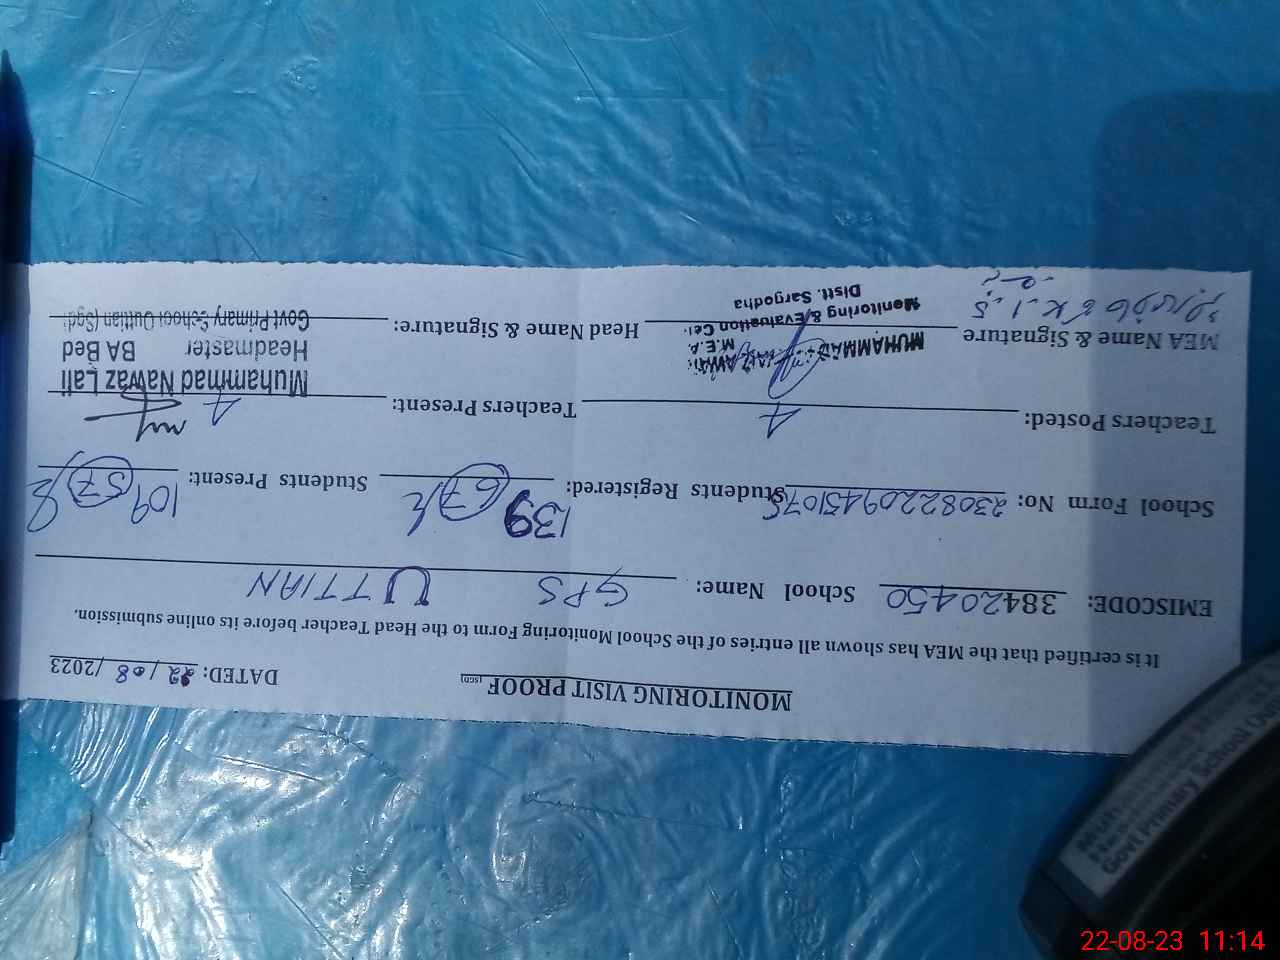 MONITORING VISIT PROOF (SGD)
DATED: 22/08/2023
It is certified that the MEA has shown all entries of the School Monitoring Form to the Head Teacher before its online submission.
EMISCODE: 38420450 School Name: GPS UTTIAN
School Form No: Students Registered: 139 (67) Students Present: 109 (57)
Teachers Posted: 4 Teachers Present: 4
MEA Name & Signature Head Name & Signature:
MUHAMMAD
M.E.A.
Monitoring & Evaluation Cell
Distt. Sargodha
Muhammad Nawaz Lali
Headmaster BA Bed
Govt Primary School Duttian (Sgd)
Govt Primary School
22-08-23 11:14